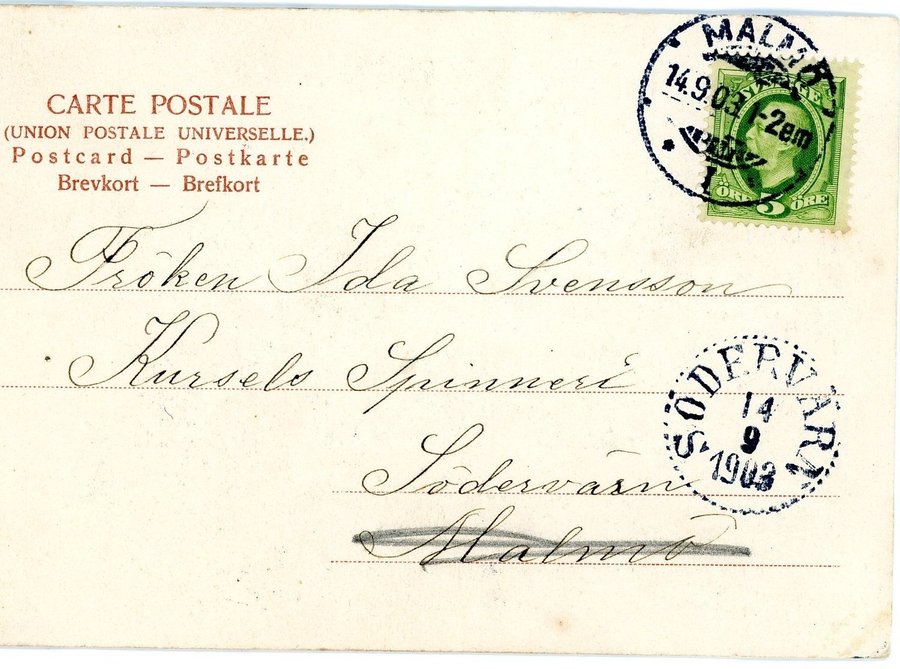 CARTE POSTALE
(UNION POSTALE UNIVERSELLE.)
Postcard — Postkarte
Brevkort — Brefkort
MALMÖ
14.9.03. 1-2em
1
ÖRE 5 ÖRE
Fröken Ida Svensson
Kursels Spinneri
Södervärn
Malmö
SÖDERVÄRN
14
9
1903